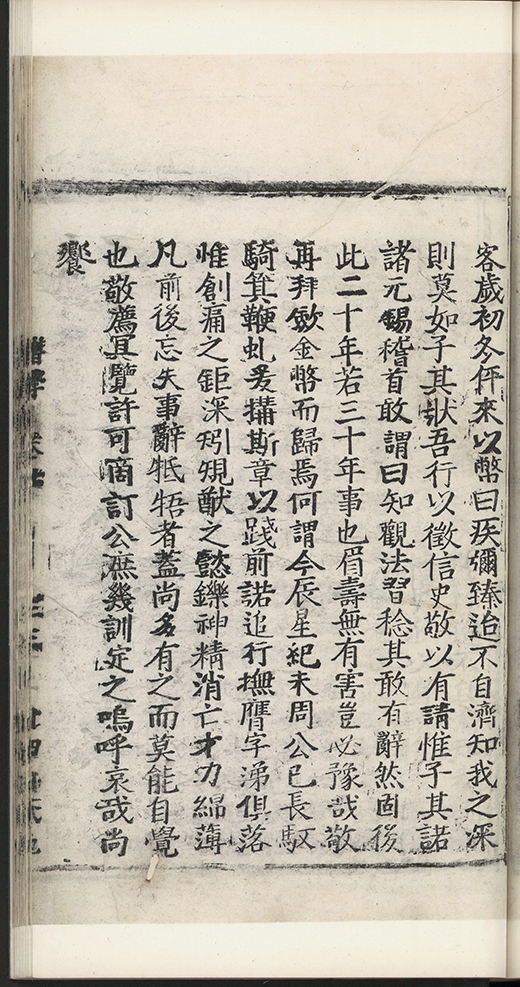 客歲初冬伻來以幣曰疾彌臻迨不自濟知我之深
則莫如子其狀吾行以徵信史敬以有請惟子其諾
諸元錫稽首敢謂曰知觀法習稔其敢有辭然固後
此二十年若三十年事也眉壽無有害豈必豫哉敬
再拜斂金幣而歸焉何謂今辰星紀未周公已長馭
騎箕鞭虬爰搆斯章以踐前諾追行撫膺字涕俱落
惟創痛之鉅深矧規猷之懿鑠神精消亡才力綿薄
凡前後忘失事辭牴牾者蓋尚多有之而莫能自覺
也敬薦冥覽許可商訂公庶幾訓定之嗚呼哀哉尚
饗